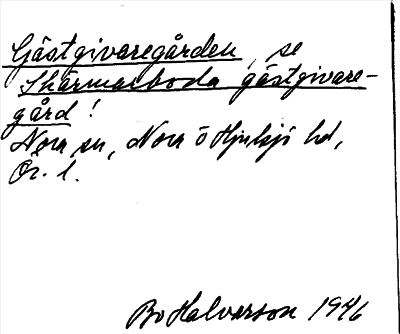 Gästgivaregården, se
Skärmarboda gästgivare-
gård!
Nora sn, Nora ö Hjulsjö hd,
Ör. l.
Bo Halvarson 1946